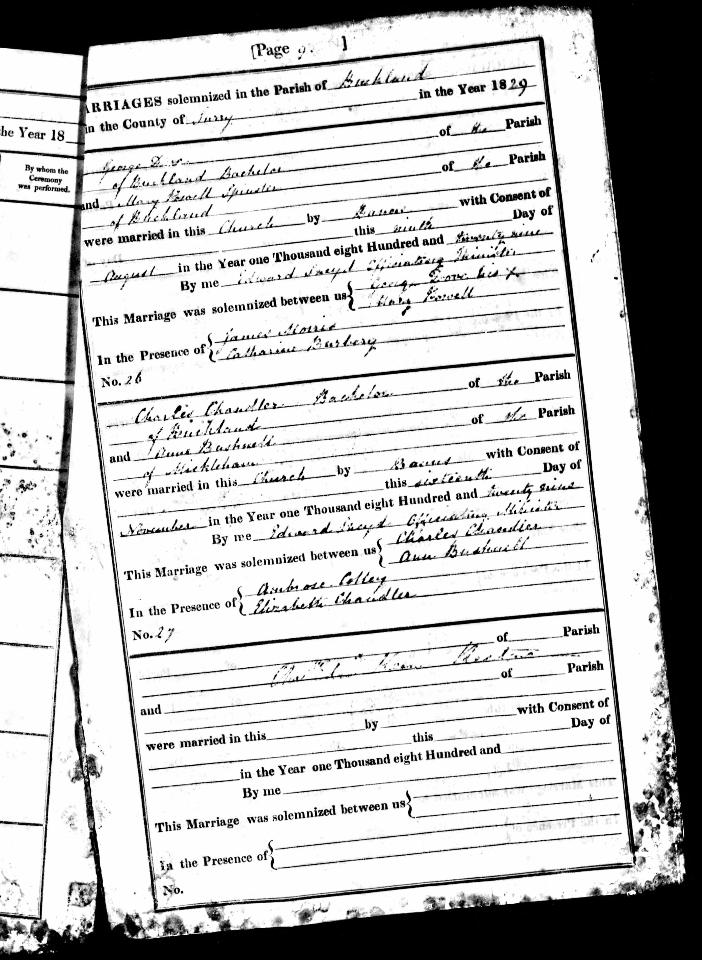 [Page 9. ]
ARRIAGES solemnized in the Parish of Buckland
in the County of Surry in the Year 1829
he Year 18
By whom the
Ceremony
was performed.
George of the Parish
of Buckland Bachelor
and Mary Powell Spinster of the Parish
of Buckland
were married in this Church by Banns with Consent of
this ninth Day of
August in the Year one Thousand eight Hundred and twenty nine
By me Edward Officiating Minister
This Marriage was solemnized between us { George Dove his x
Mary Powell
In the Presence of { James Morris
Catharine Burbery
No. 26
Charles Chandler Bachelor of the Parish
of Buckland
and Ann Bushnell of the Parish
of Mickleham
were married in this Church by Banns with Consent of
this sixteenth Day of
November in the Year one Thousand eight Hundred and twenty nine
By me Edward Officiating Minister
This Marriage was solemnized between us { Charles Chandler
Ann Bushnell
In the Presence of { Ambrose Colley
Elizabeth Chandler
No. 27
of Parish
and of Parish
were married in this by with Consent of
this Day of
in the Year one Thousand eight Hundred and
By me
This Marriage was solemnized between us {
In the Presence of {
No.